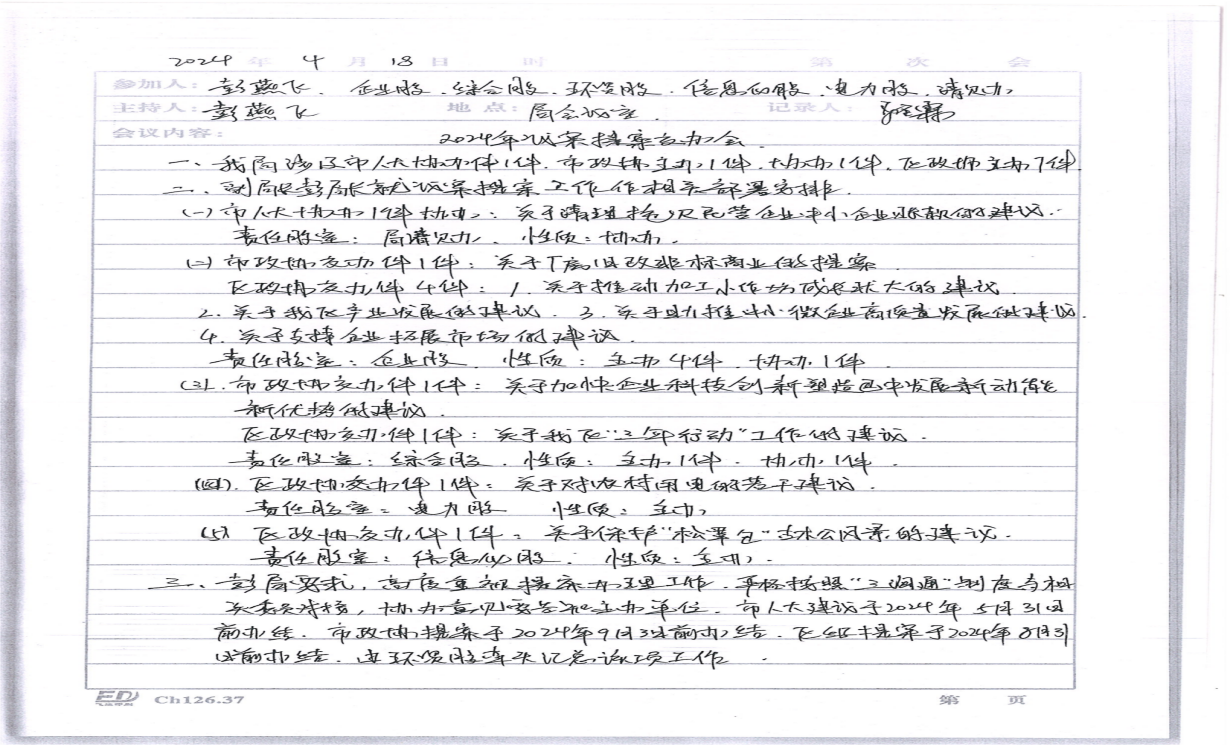 2024 年 4 月 18 日 时 第 次 会
参加人：彭燕飞、企业股、综合股、环资股、信息化股、电力股、清欠办
主持人：彭燕飞 地点：局会议室 记录人：
会议内容： 2024年议案提案交办会
一、我局涉及市人大协办件1件，市政协主办1件，协办1件，区政协主办7件。
二、副局长彭局长就议案提案工作作相关部署安排。
(一) 市人大协办1件协办：关于清理拖欠民营企业中小企业账款的建议。
责任股室：局清欠办、性质：协办。
(二) 市政协交办件1件：关于厂房旧改非标商业的提案
区政协交办件4件：1、关于推动加工小作坊成长壮大的建议
2、关于我区产业发展的建议、3、关于助推中小微企业高质量发展的建议
4、关于支持企业拓展市场的建议
责任股室：企业股 性质：主办4件，协办1件
(三). 市政协交办件1件：关于加快企业科技创新塑造巴中发展新动能
新优势的建议。
区政协交办件1件：关于我区“三年行动”工作的建议。
责任股室：综合股、性质：主办1件、协办1件。
(四). 区政协交办件1件：关于对农村用电的若干建议。
责任股室：电力股 性质：主办
(五) 区政协交办件1件：关于保护“松罩包”古木公园景的建议.
责任股室：信息化股. 性质：主办.
三、彭局要求，高度重视提案办理工作，严格按照“三沟通”制度与相
关委员对接，协办意见要告知主办单位，市人大建议于2024年5月31日
前办结，市政协提案于2024年9月3日前办结，区级提案于2024年8月31
日前办结，由环资股牵头汇总该项工作。
Ch126.37 第 页